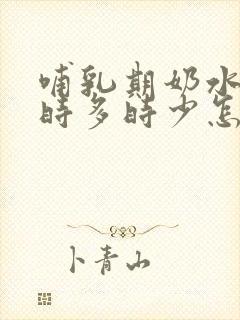 哺乳期奶水
时多时少怎
卜青山